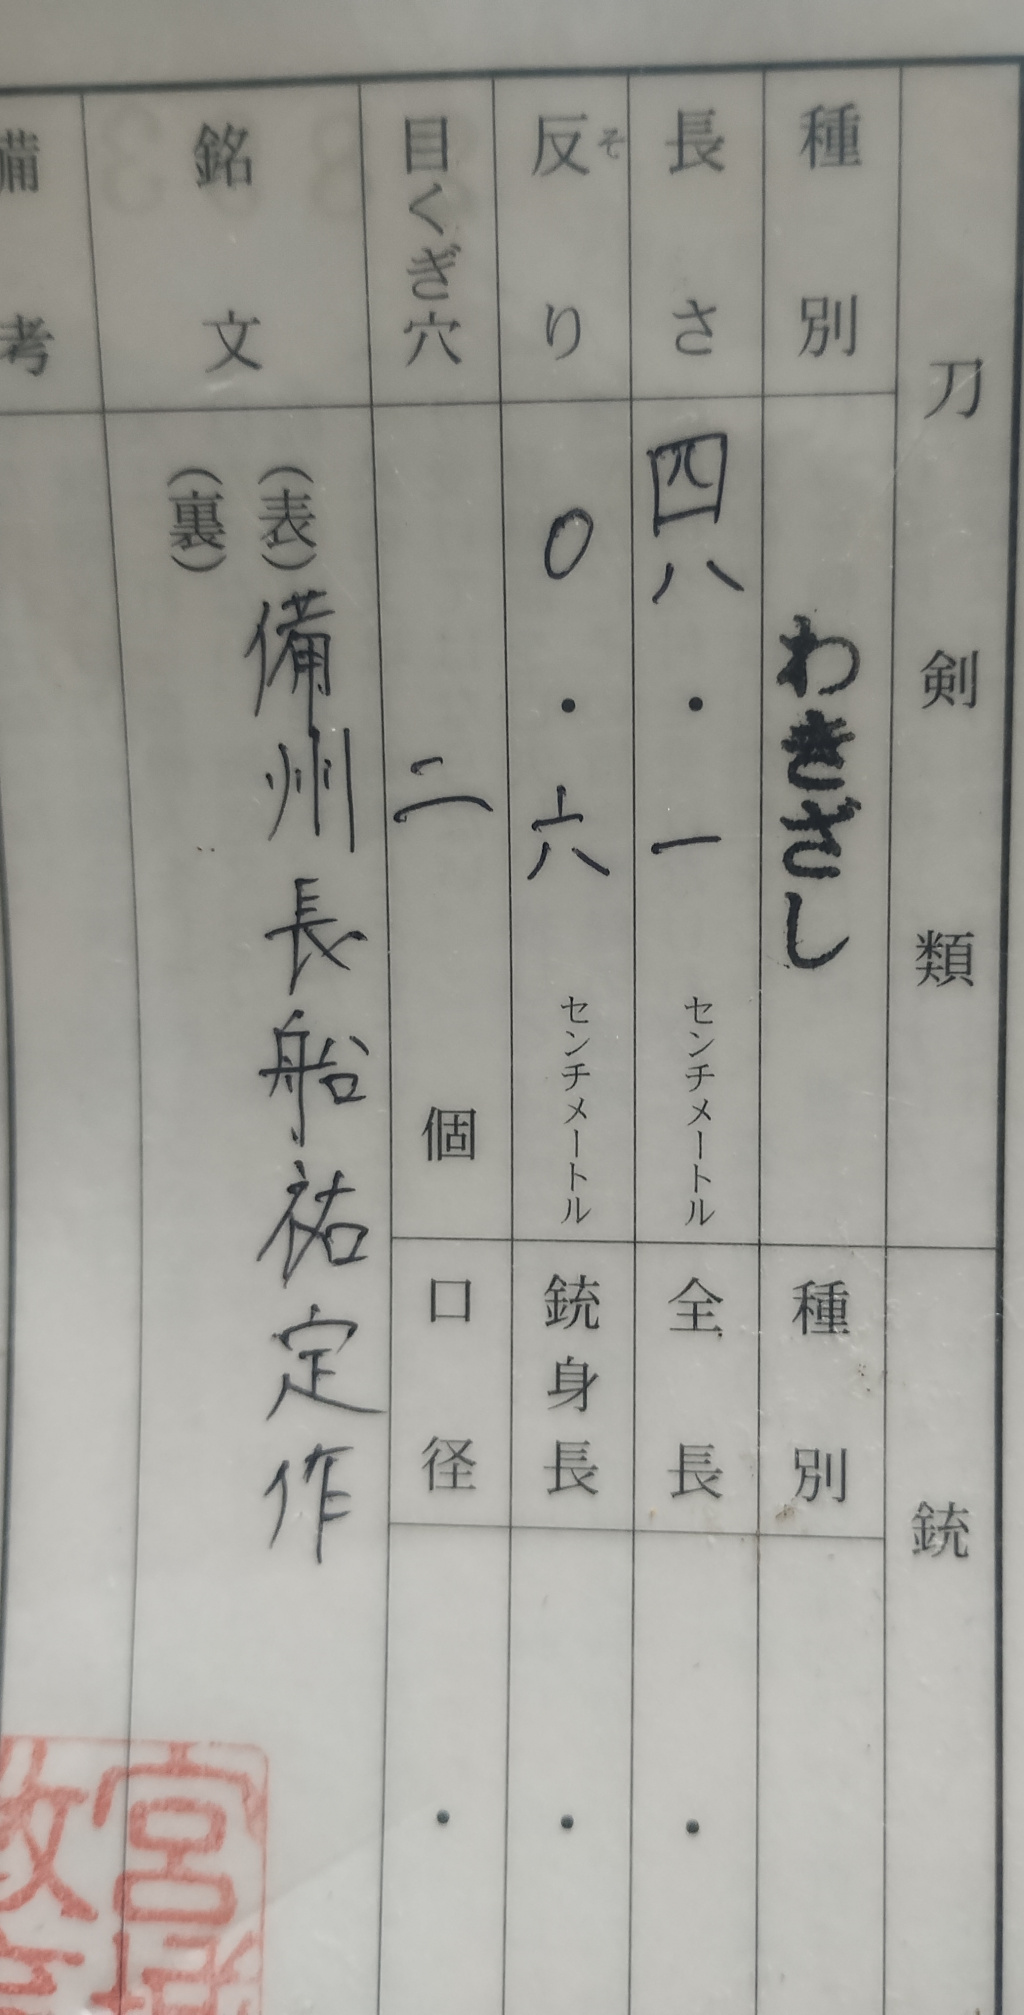 刀剣類 銃
種別 わきざし 種別
長さ 四八・一 センチメートル 全長 ・
反り そ 〇・六 センチメートル 銃身長 ・
目くぎ穴 二 個 口径 ・
銘文 (表) 備州長船祐定作
(裏)
備考
宮
教